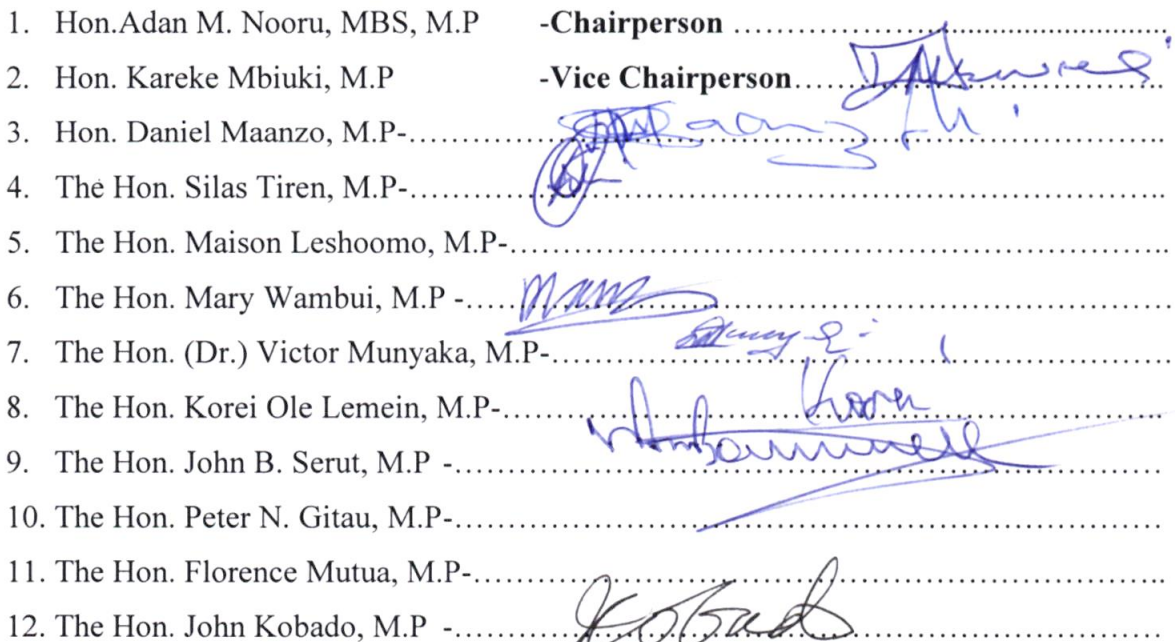 1. Hon.Adan M. Nooru, MBS, M.P -Chairperson ........................................
2. Hon. Kareke Mbiuki, M.P -Vice Chairperson........................................
3. Hon. Daniel Maanzo, M.P-........................................
4. The Hon. Silas Tiren, M.P-........................................
5. The Hon. Maison Leshoomo, M.P-........................................
6. The Hon. Mary Wambui, M.P -........................................
7. The Hon. (Dr.) Victor Munyaka, M.P-........................................
8. The Hon. Korei Ole Lemein, M.P-........................................ Korei
9. The Hon. John B. Serut, M.P -........................................
10. The Hon. Peter N. Gitau, M.P-........................................
11. The Hon. Florence Mutua, M.P-........................................
12. The Hon. John Kobado, M.P -........................................ Kobado